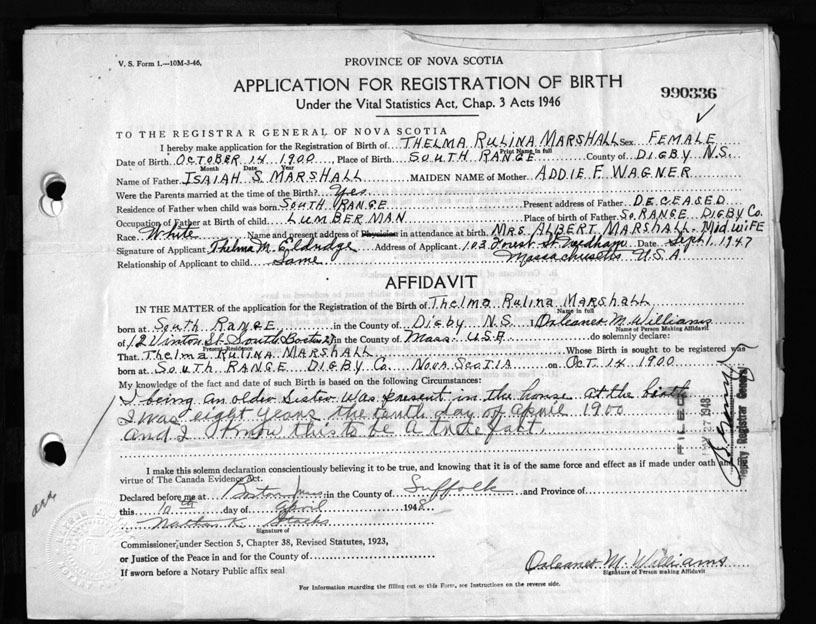 V. S. Form 1.—10M-3-46.
PROVINCE OF NOVA SCOTIA
APPLICATION FOR REGISTRATION OF BIRTH
990336
Under the Vital Statistics Act, Chap. 3 Acts 1946
TO THE REGISTRAR GENERAL OF NOVA SCOTIA
I hereby make application for the Registration of Birth of THELMA RULINA MARSHALL Sex FEMALE
Print Name in full
Date of Birth OCTOBER 14 1900, Place of Birth SOUTH RANGE County of DIGBY N.S.
Month Date Year
Name of Father ISAIAH S. MARSHALL MAIDEN NAME of Mother ADDIE F. WAGNER
Were the Parents married at the time of the Birth? Yes
Residence of Father when child was born SOUTH RANGE Present address of Father DECEASED
Occupation of Father at Birth of child LUMBERMAN Place of birth of Father SO. RANGE DIGBY CO.
Race White Name and present address of Physician in attendance at birth MRS ALBERT MARSHALL - Mid WIFE
Signature of Applicant Thelma M. Eldridge Address of Applicant 103 Forest St. Needham Date Sept 1, 1947
Relationship of Applicant to child Same Massachusetts U.S.A.
AFFIDAVIT
IN THE MATTER of the application for the Registration of the Birth of Thelma Rulina Marshall
Name in full
born at South Range in the County of Digby N.S. I Orleanor M. Williams
Name of Person Making Affidavit
of 12 Vinton St. South Boston 27 in the County of Mass. U.S.A. do solemnly declare:
Present Residence
That Thelma Rulina Marshall Whose Birth is sought to be registered was
born at South Range Digby Co. Nova Scotia on Oct 14 1900
My knowledge of the fact and date of such Birth is based on the following Circumstances:
I being an older sister was present in the house at the birth
I was eight years the tenth day of April 1900
and I know this to be a true fact.
FILED
27 1948
Deputy Registrar General
I make this solemn declaration conscientiously believing it to be true, and knowing that it is of the same force and effect as if made under oath and
virtue of The Canada Evidence Act.
Declared before me at Boston Mass in the County of Suffolk and Province of
this 10th day of April 1948.
Nathan K.
Signature of
Commissioner under Section 5, Chapter 38, Revised Statutes, 1923,
or Justice of the Peace in and for the County of
If sworn before a Notary Public affix seal
Orleanor M. Williams
Signature of Person making Affidavit
For Information regarding the filling out of this Form, see Instructions on the reverse side.